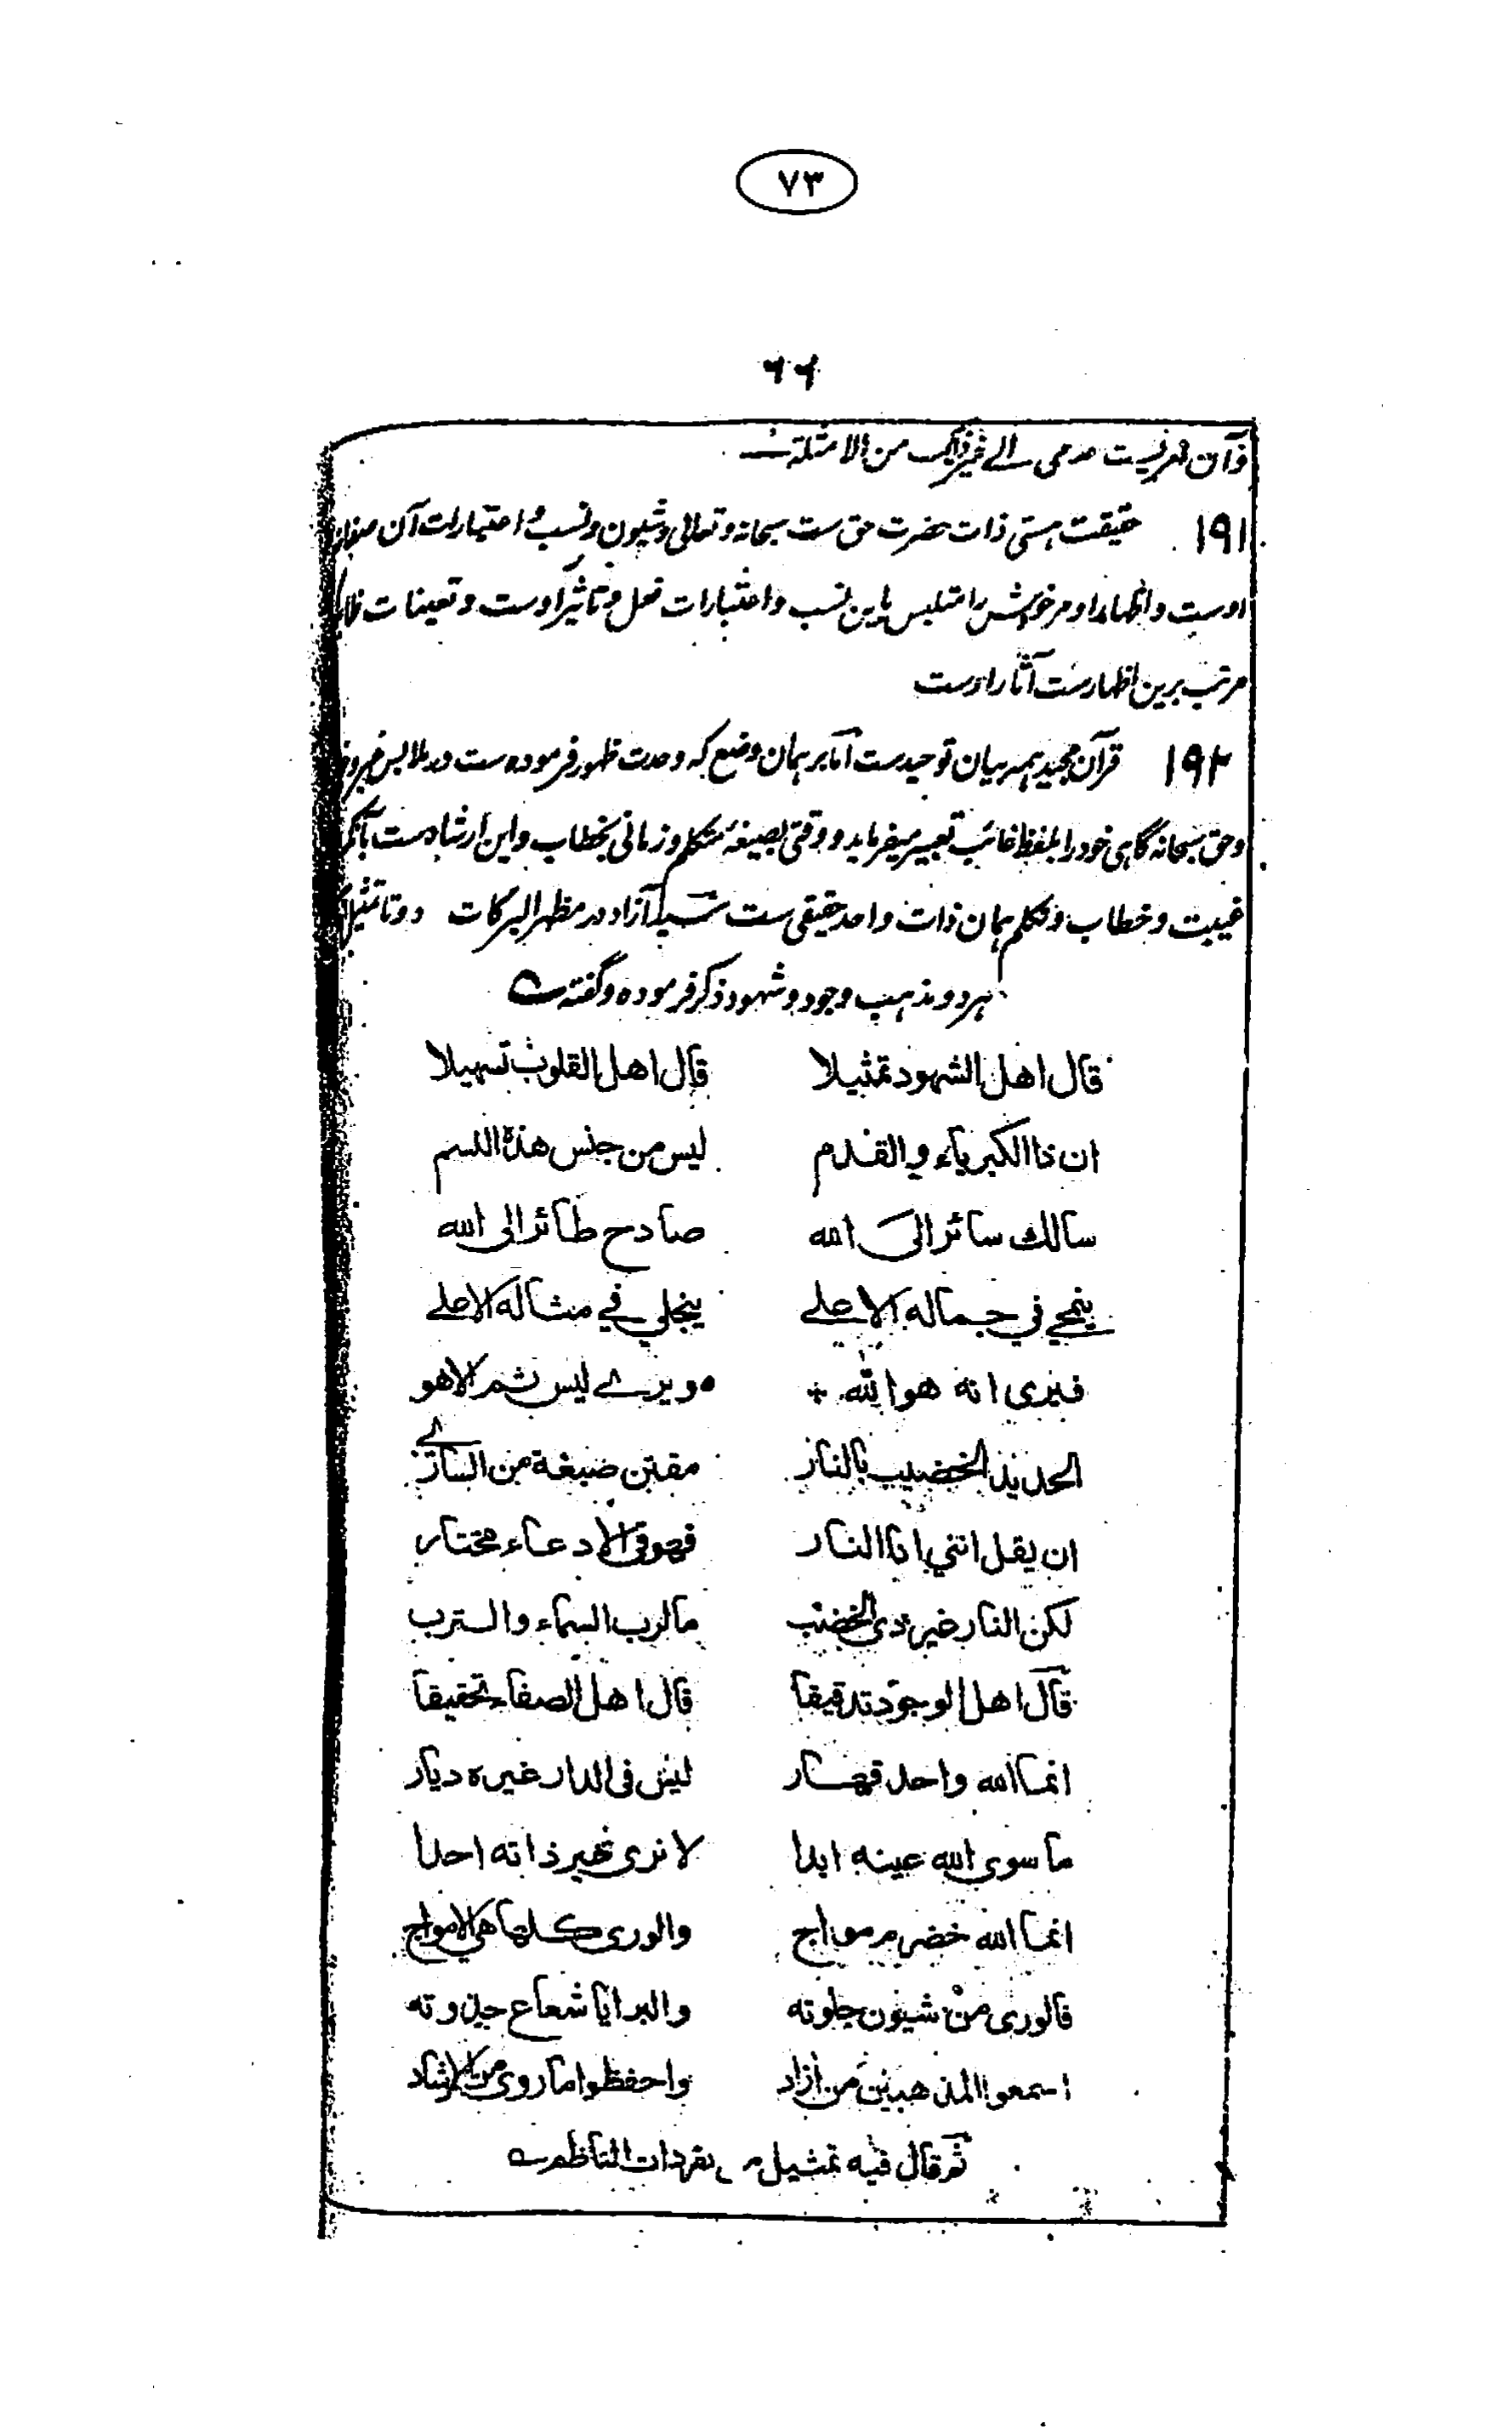 ۷۳
۶۶
و آن تعریفیست عدمی الی غیر ذلک من الامثلة
۱۹۱ حقیقت هستی ذات حضرت حق ست سبحانه و تعالی و شیون و نسب و اعتبارات آن صفات
اوست و اظهار او مر خویش را متلبس باین نسب و اعتبارات فعل و تاثیر اوست و تعینات
مرتب برین اظهارست آثار اوست
۱۹۲ قرآن مجید همه بیان توحیدست اما بر همان وضع که وحدت ظهور فرموده ست در ملابس
و حق سبحانه گاهی خود را بلفظ غائب تعبیر میفرماید و وقتی بصیغه متکلم و زمانی بخطاب و این ارشادست بآنکه
غیبت و خطاب و تکلم همان ذات واحد حقیقی ست آزاد در مظهر البرکات دو تا تمثیل
هر دو مذهب وجود و شهود ذکر فرموده و گفته
قال اهل الشهود تمثیلا قال اهل القلوب تسهیلا
ان ذا الکبریاء و القدم لیس من جنس هذه النسم
سالک سائر الی الله صادح طائر الی الله
ینمحی فی جماله الاعلے ینجلی فی مثاله الاعلے
فیری انه هو الله و یرے لیس ثم الا هو
الحدید الخضیب بالنار مقتبن صبغة من الساری
ان یقل اننی انا النار فهو فی الادعاء مختار
لکن النار غیر ذی الخضب ما لرب السماء والترب
قال اهل الوجود تدقیقا قال اهل الصفاء تحقیقا
انما الله واحد قهار لیس فی الدار غیره دیار
ما سوی الله عینه ابدا لا نری غیر ذاته احدا
انما الله خضرم مواج والوری کلها هی الامواج
فالوری من شیون جلوته والبرایا شعاع جذوته
اسمعوا المذهبین من آزاد واحفظوا ما روی من الارشاد
ثم قال فیه تمثیل من تفردات الناظم